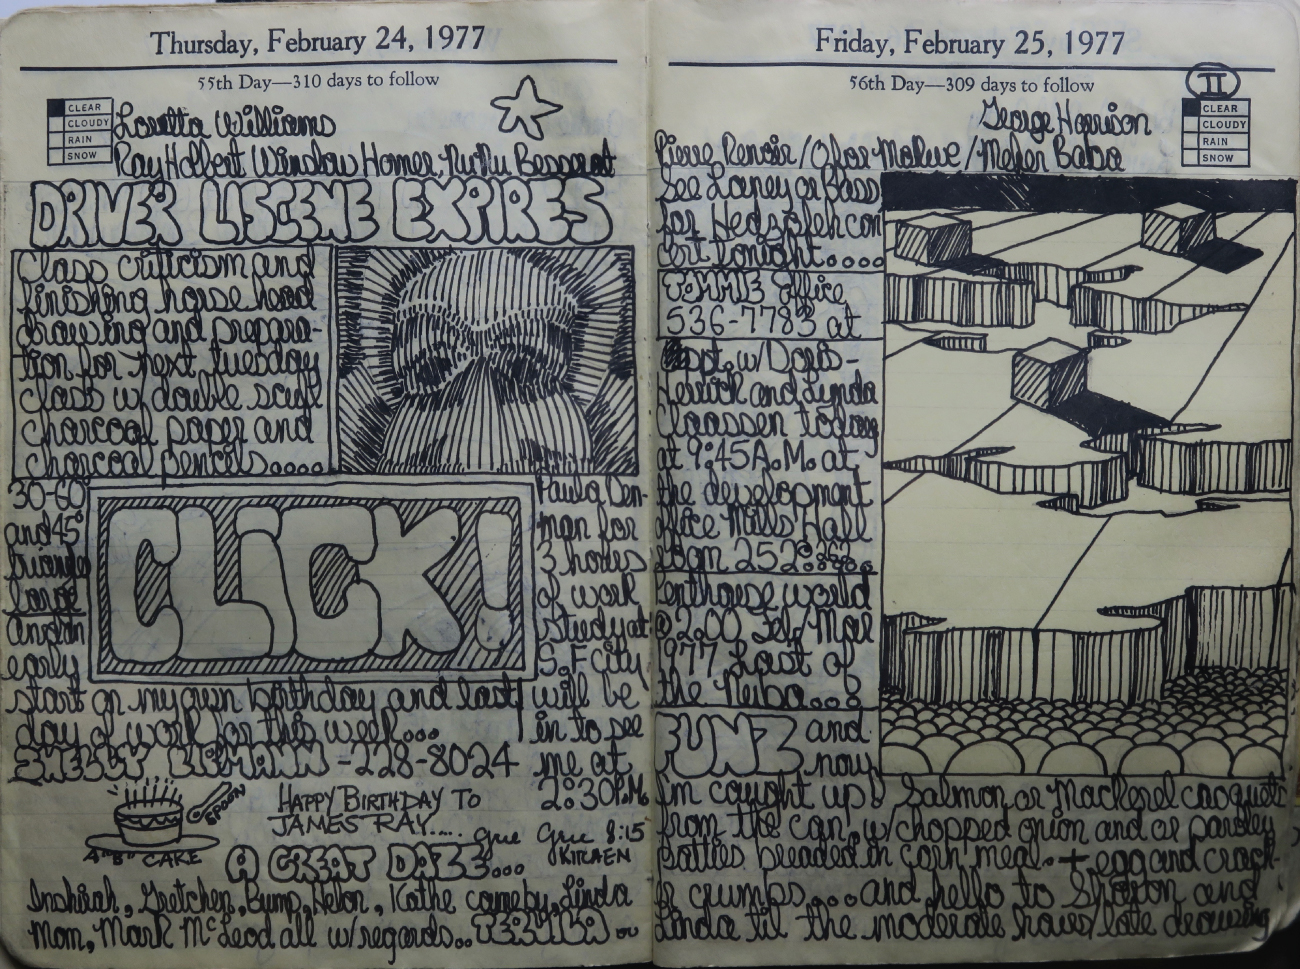 Thursday, February 24, 1977
55th Day—310 days to follow
CLEAR
CLOUDY
RAIN
SNOW
Loretta Williams
Ray Holbert Winslow Homer, NuNu Besserat
DRIVER LISCENE EXPIRES
Class criticism and
finishing horse head
drawing and prepara-
tion for next tuesday
class w/double scuft
charcoal paper and
charcoal pencils.....
30-60
and 45°
triangle
large
and an
early
CLiCK!
Paula Den-
man for
3 hours
of work
study at
S.F City
will be
in to see
me at
2:30P.M.
start on my own birthday and last
day of work for this week...
-228-8024
SPOON
HAPPY BIRTHDAY TO
JAMES RAY....
4 "B" CAKE
Grue 8:15
KIRAEN
A GREAT DAZE...
Inshirah, Gretchen, Bump, Helon, Kathe came by, Linda
Mom, Mark McLeod all w/regards..
Friday, February 25, 1977
56th Day—309 days to follow
II
CLEAR
CLOUDY
RAIN
SNOW
George Harrison
Pierre Renoir/Ofor Mokue/Meher Baba
See Laney or Bass
for Hedzoleh con
cert tonight....
Office
536-7783 at
appt. w/Doris-
Herrick and Lynda
Claassen today
at 9:45A.M. at
the development
office Mills Hall
room 252
Penthouse world
@2.00 Feb/Mar
1977 Last of
the Nuba...
RUNZ and
now
I'm caught up! Salmon or Mackerel croquets
from the can, w/chopped onion and or parsley
patties breaded in corn meal. + egg and crack-
er crumps....and hello to Sharon and
Linda til the moderate hours/late drawing